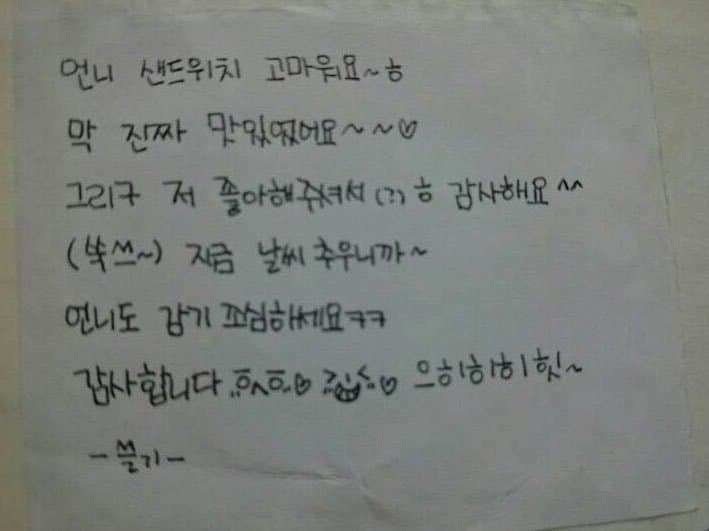 언니 샌드위치 고마워요~ㅎ
막 진짜 맛있었어요~~♡
그리구 저 쫗아해주셔서(?)ㅎ 감사해요^^
(쑥쓰~) 지금 날씨 추우니까~
언니도 감기 꼬심하세요ㅋㅋ
감사합니다 ㅎㅅㅎ♡ ♡ 으히히히힛~
-쓸기-